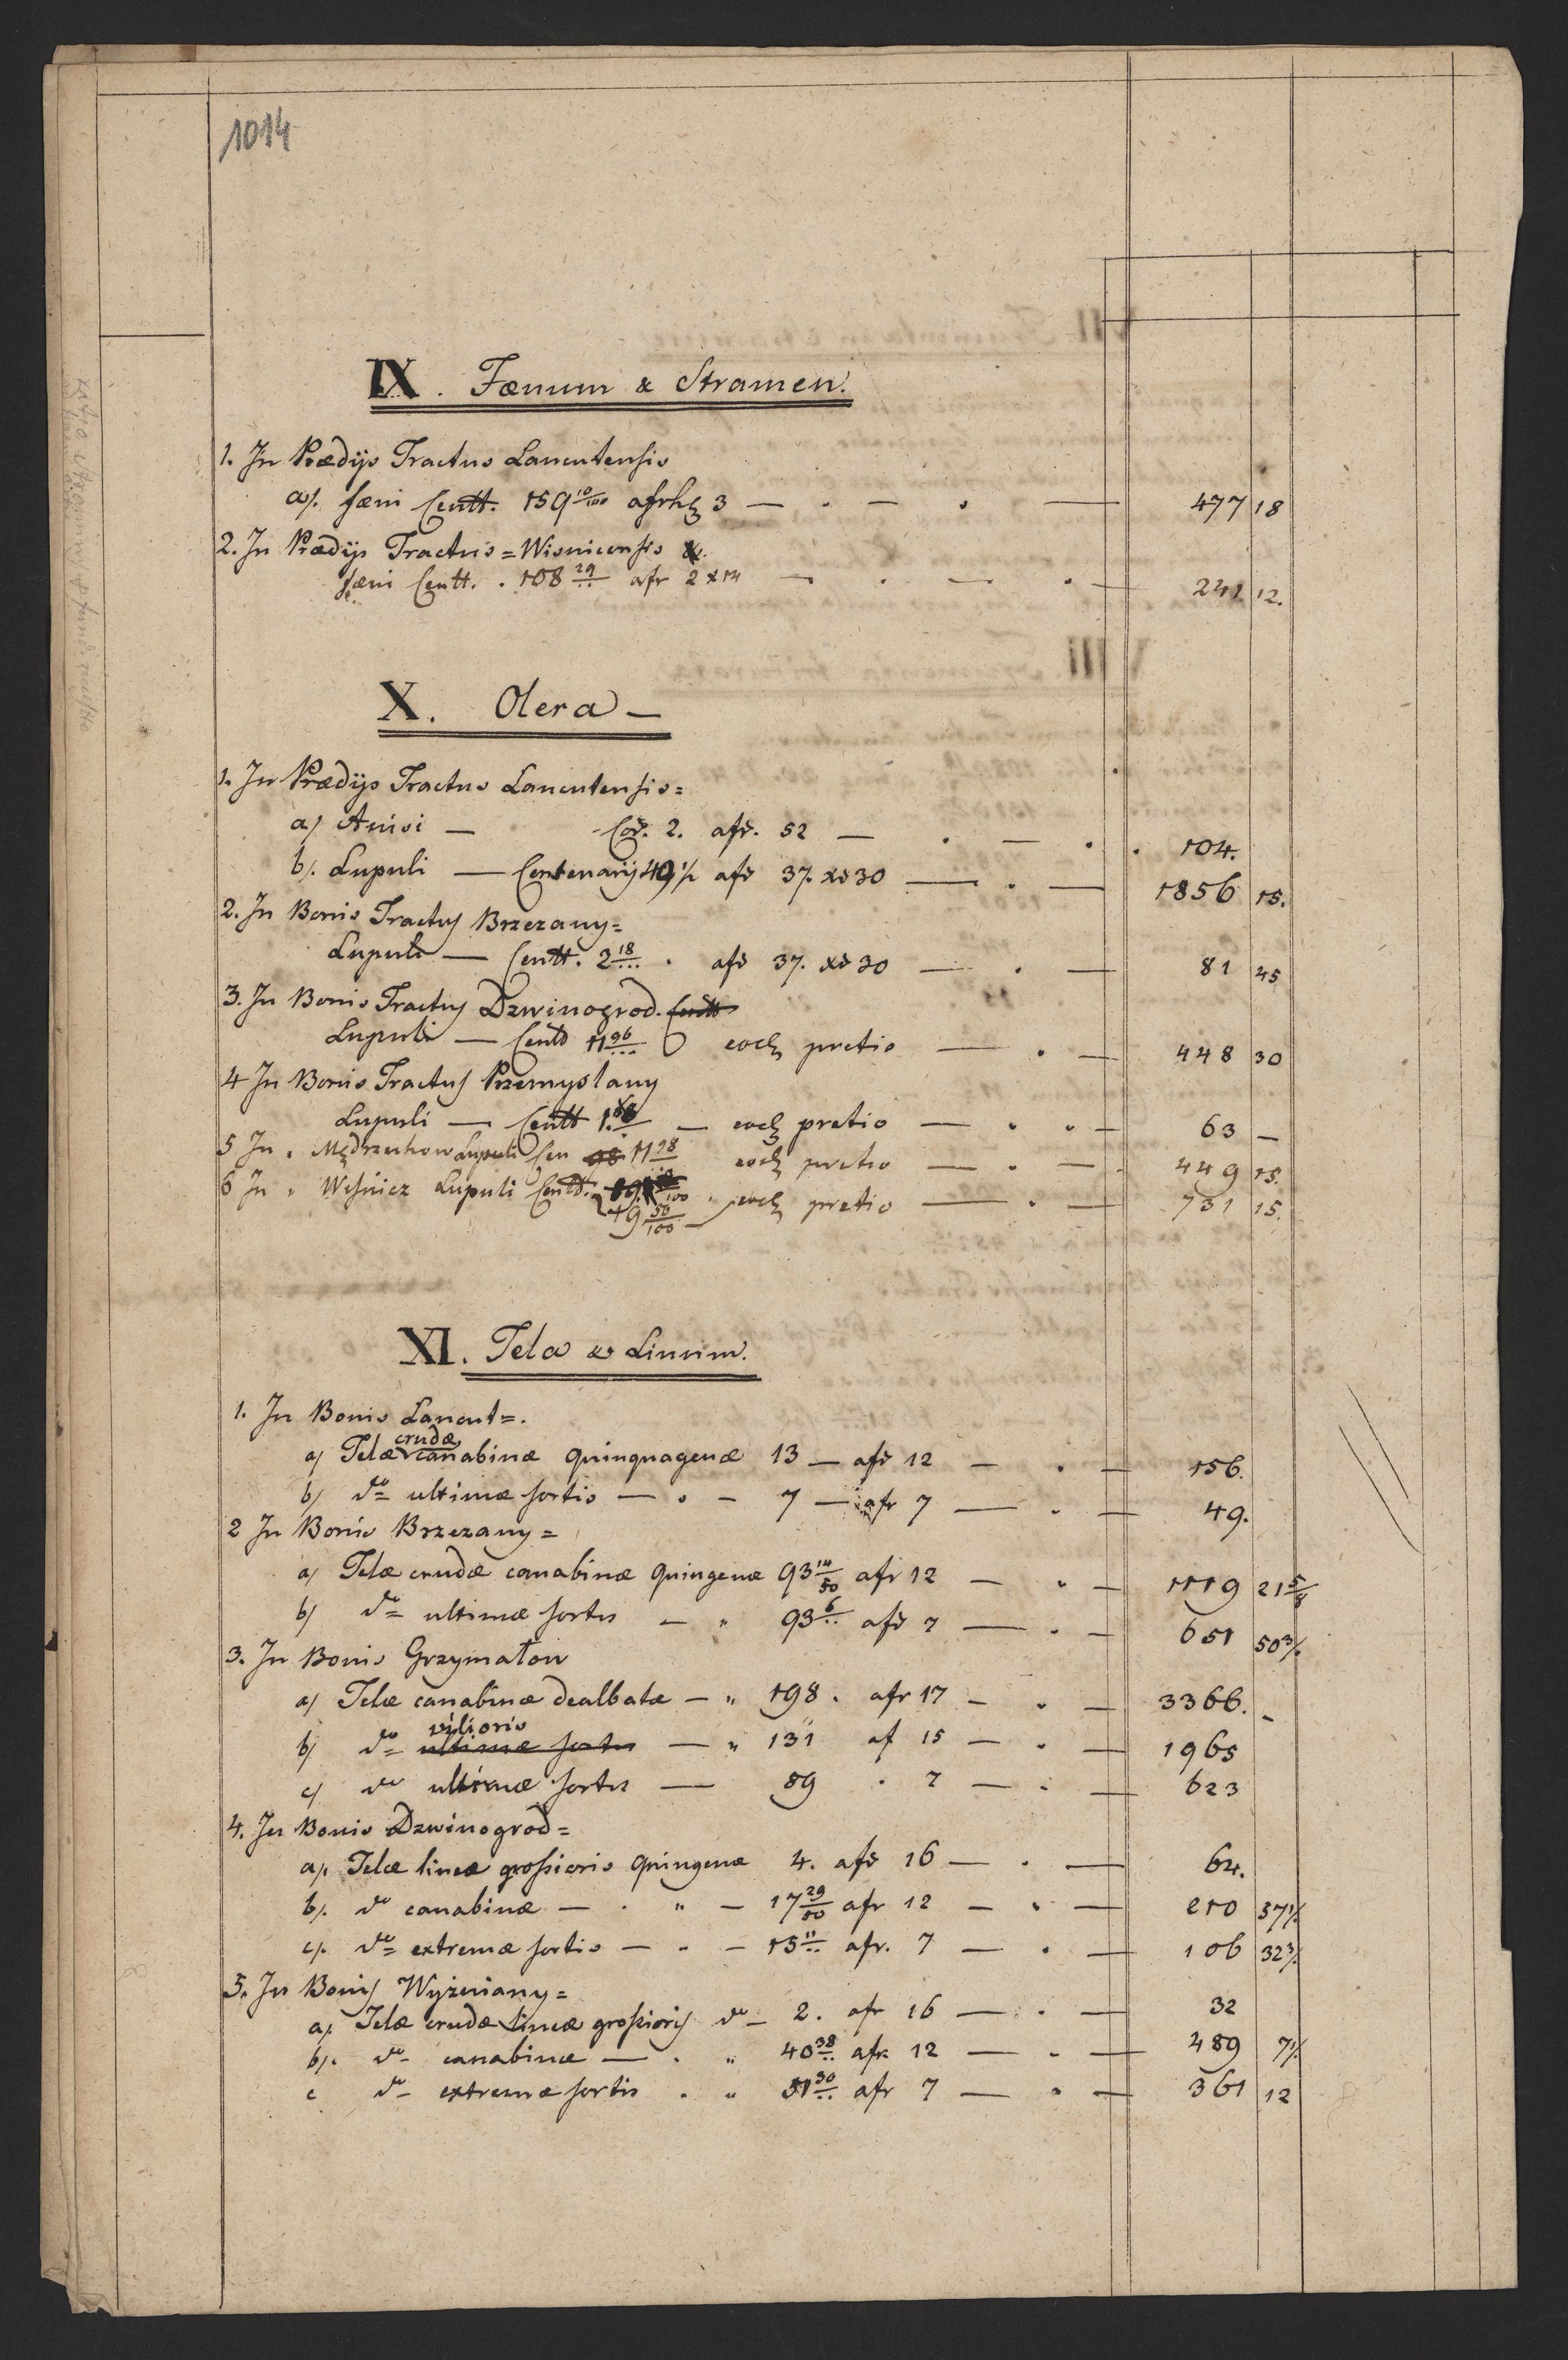 1014
IX. Fœnum & Stramen.
1. In Prædijs Tractus Lancutensis
a). fœni Centt. 159 10/100 afrhg 3 — . — . — 477 18
2. In Prædijs Tractus = Wisnicensis
fœni Centt. . 108 29/.. afr 2 x 14 — . — . — 241 12.
X. Olera —
1. In Prædijs Tractus Lancutensis =
a) Anisi — Cor. 2. afr. 52 — . — . . 104.
b). Lupuli — Centenarij 49 1/2 afr 37. xr 30 — . — 1856 15.
2. In Bonis Tractus Brzezany =
Lupuli — Centt. 2 18/... . afr 37. xr 30 — . — 81 45
3. In Bonis Tractus Dzwinogrod. Centt
Lupuli — Centt 11 96/... eodg pretio — . — 448 30
4 In Bonis Tractus Przemyslany
Lupuli — Centt 1. 68/. — eodg pretio — . . — 63 —
5 In " Mędrzechow Lupuli Cen 11 98/... eodg pretio — . — 449 15.
6 In " Wisnicz Lupuli Centt. eodg pretio — . — 731 15.
19 50/100
XI. Tela & Linum.
1. In Bonis Lancut =.
crudæ
a) Telæ canabinæ quinquagenæ 13 — afr 12 — . — 156.
b) do = ultimæ sortis — . — 7 — afr 7 — . — 49.
2 In Bonis Brzezany =
a) Telæ crudæ canabinæ quingenæ 93 14/50 afr 12 — . — 1119 21 5/8
b) do = ultimæ sortis — " 93 6/.. afr 7 — . — 651 50 3/.
3. In Bonis Grzymałow
a) Telæ canabinæ dealbatæ — " 198 . afr 17 — . — 3366. —
vilioris
b) do = ultimæ sortis — " 131 af 15 — . — 1965
c) do ultimæ sortis — 89 . 7 — . — 623
4. In Bonis Dzwinogrod =
a). Telæ lineæ grossioris quingenæ 4. afr 16 — . — 64.
b). do canabinæ — . " — 17 29/50 afr 12 — . — 210 37 1/.
c). do = extremæ sortis — . — 15 11/.. afr. 7 — . — 106 32 3/.
5. In Bonis Wyżniany =
a). Telæ crudæ lineæ grossioris do — 2. afr 16 — . — 32
b). do - canabinæ — . " 40 38/.. afr 12 — . — 489 7 1/.
c do - extremæ sortis . " 51 30/.. afr 7 — . — 361 12